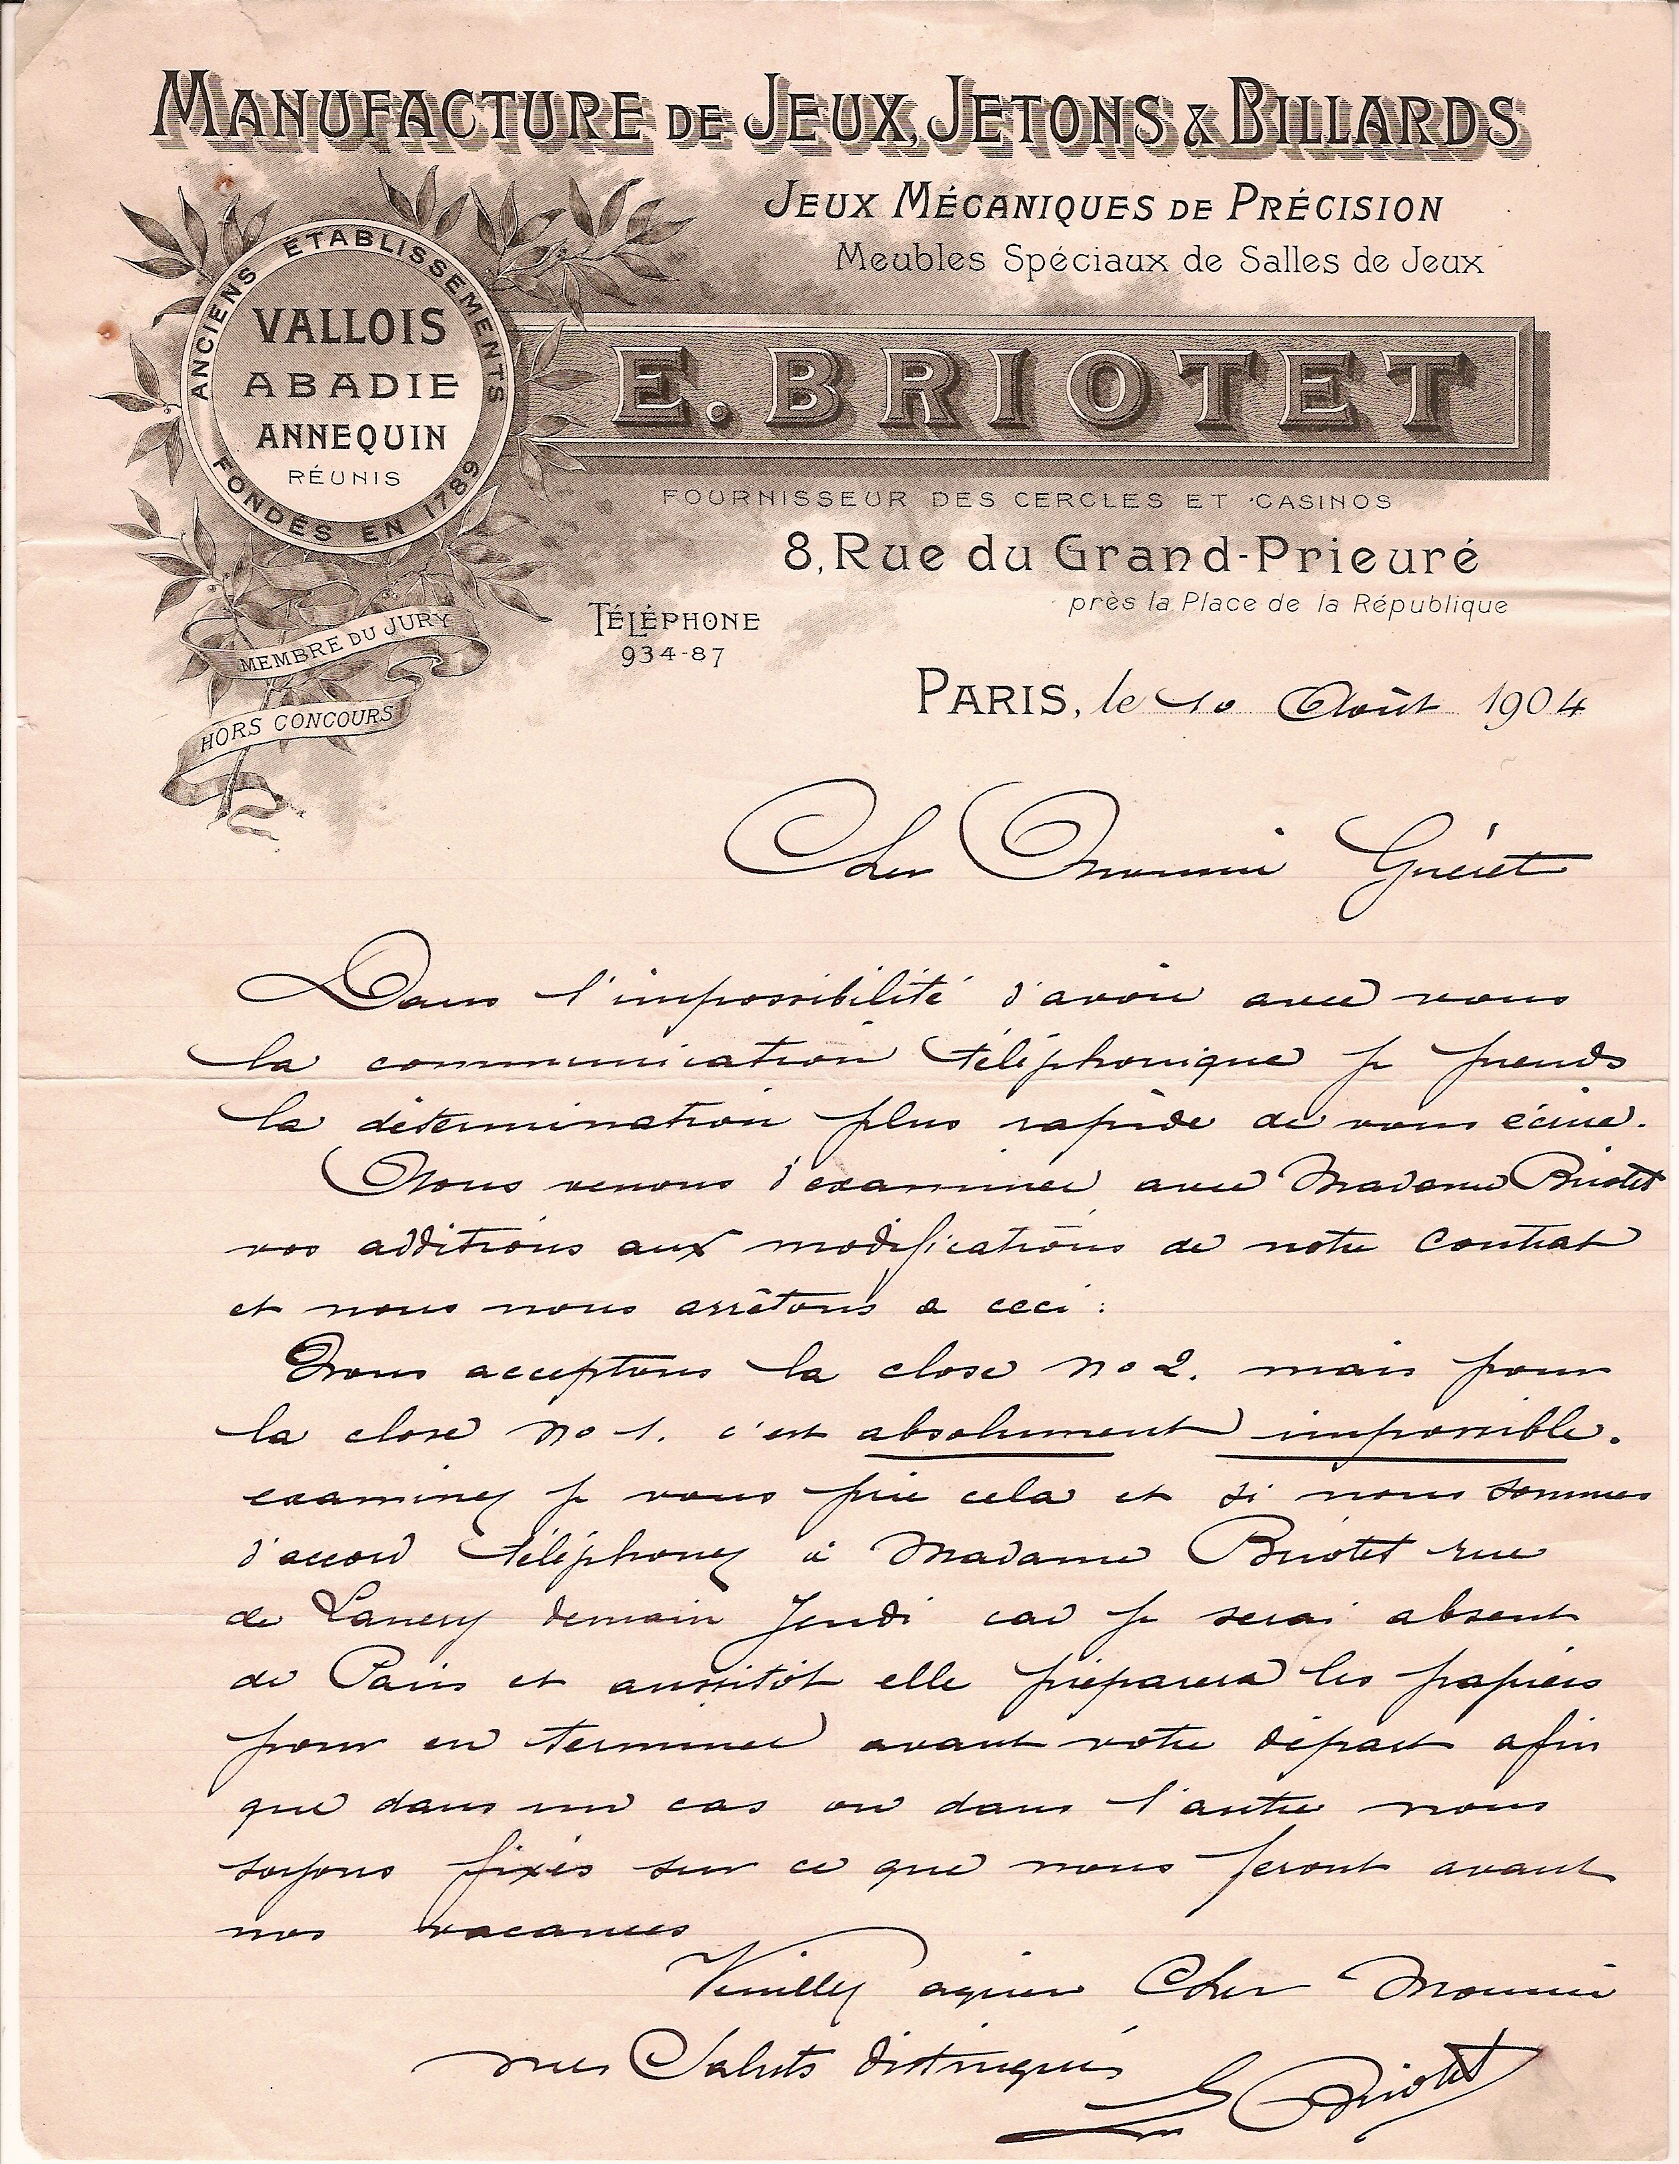 MANUFACTURE DE JEUX, JETONS & BILLARDS
JEUX MÉCANIQUES DE PRÉCISION
Meubles Spéciaux de Salles de Jeux
ANCIENS ÉTABLISSEMENTS
VALLOIS
ABADIE
ANNEQUIN
RÉUNIS
FONDÉS EN 1789
E. BRIOTET
FOURNISSEUR DES CERCLES ET CASINOS
8, Rue du Grand-Prieuré
près la Place de la République
TÉLÉPHONE
934-87
MEMBRE DU JURY
HORS CONCOURS
PARIS, le 10 Août 1904
Cher Monsieur Guéret
Dans l'impossibilité d'avoir avec vous
la communication téléphonique je prends
la détermination plus rapide de vous écrire.
Nous venons d'examiner avec Madame Briotet
vos additions aux modifications de notre Contrat
et nous nous arrêtons a ceci :
Nous acceptons la close no 2. mais pour
la close no 1. c'est absolument impossible.
examinez je vous prie cela et si nous sommes
d'accord téléphonez à Madame Briotet rue
de Lancry demain Jeudi car je serai absent
de Paris et aussitôt elle préparera les papiers
pour en terminer avant votre départ afin
que dans un cas ou dans l'autre nous
soyons fixés sur ce que nous feront avant
nos vacances
Veuillez agréer Cher Monsieur
mes Saluts distingués
E Briotet